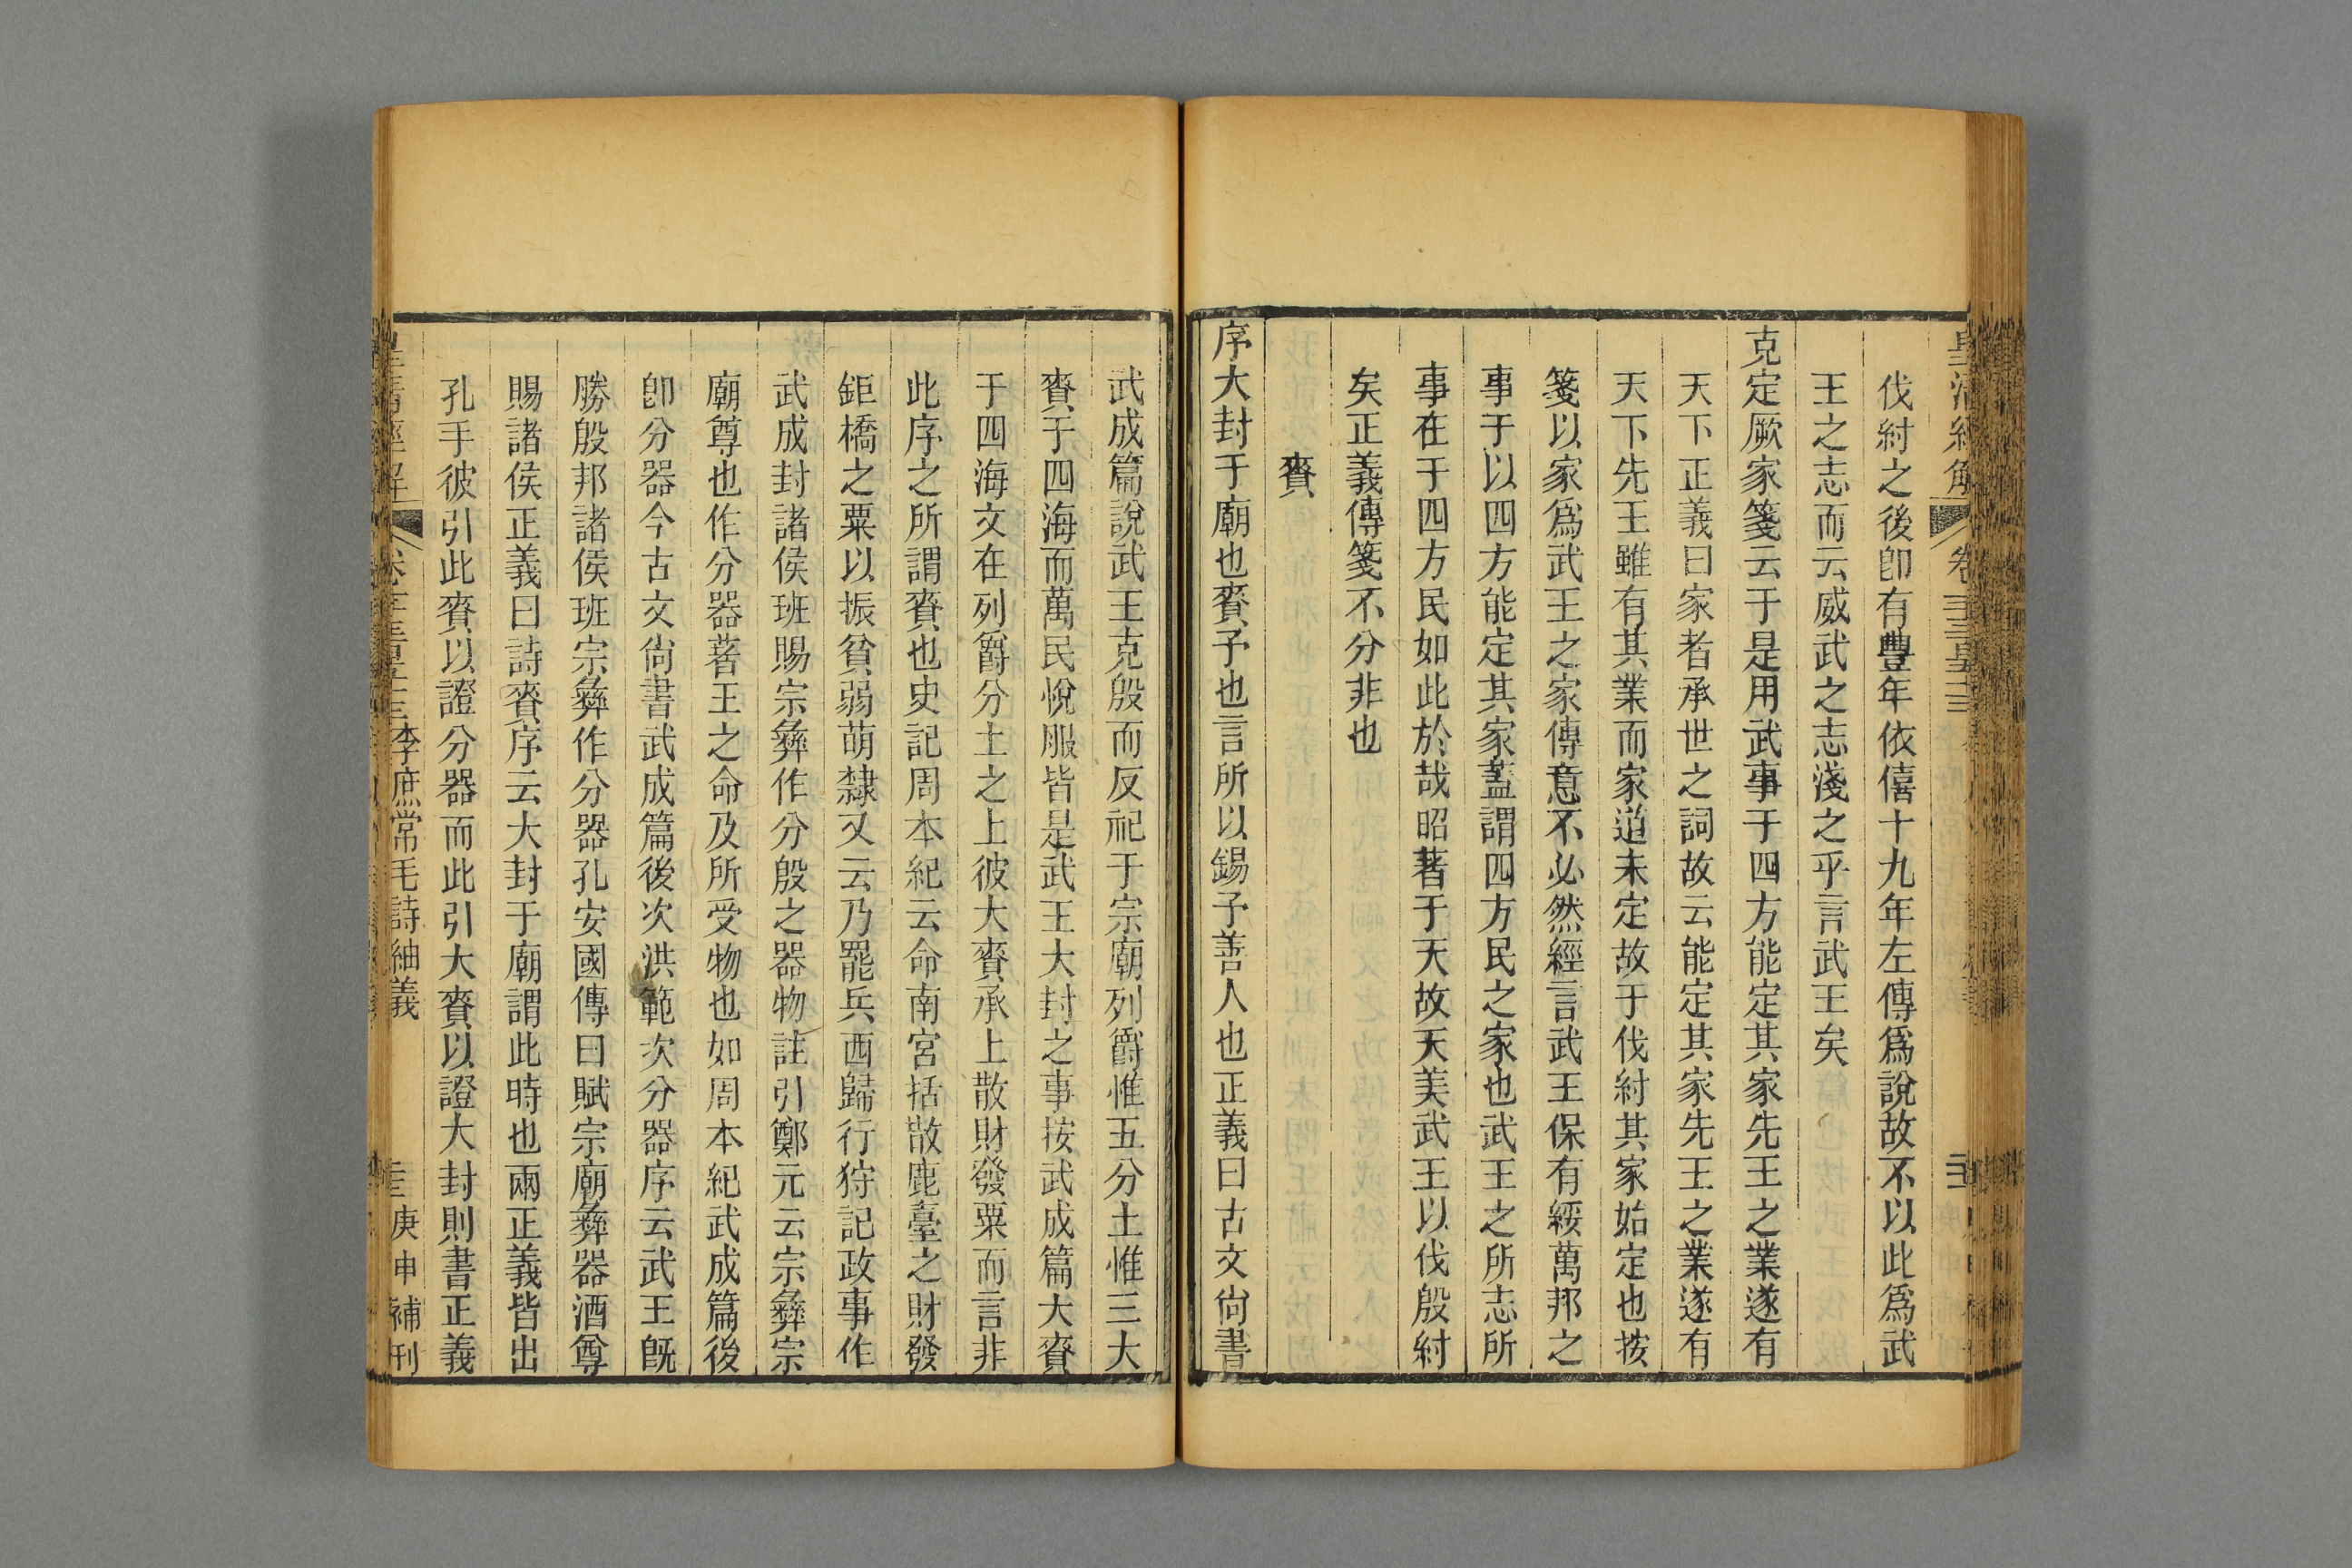 伐紂之後卽有豐年依僖十九年左傳爲說故不以此爲武
王之志而云威武之志淺之乎言武王矣
克定厥家箋云于是用武事于四方能定其家先王之業遂有
天下正義曰家者承世之詞故云能定其家先王之業遂有
天下先王雖有其業而家道未定故于伐紂其家始定也按
箋以家爲武王之家傳意不必然經言武王保有綏萬邦之
事于以四方能定其家蓋謂四方民之家也武王之所志所
事在于四方民如此於哉昭著于天故天美武王以伐殷紂
矣正義傳箋不分非也
賚
序大封于廟也賚予也言所以錫予善人也正義曰古文尙書
武成篇說武王克殷而反祀于宗廟列爵惟五分土惟三大
賚于四海而萬民悅服皆是武王大封之事按武成篇大賚
于四海文在列爵分土之上彼大賚承上散財發粟而言非
此序之所謂賚也史記周本紀云命南宮括散鹿臺之財發
鉅橋之粟以振貧弱萌隸又云乃罷兵西歸行狩記政事作
武成封諸侯班賜宗彝作分殷之器物註引鄭元云宗彝宗
廟尊也作分器著王之命及所受物也如周本紀武成篇後
卽分器今古文尙書武成篇後次洪範次分器序云武王旣
勝殷邦諸侯班宗彝作分器孔安國傳曰賦宗廟彝器酒尊
賜諸侯正義曰詩賚序云大封于廟謂此時也兩正義皆出
孔手彼引此賚以證分器而此引大賚以證大封則書正義
李庶常毛詩紬義
庚申補刊